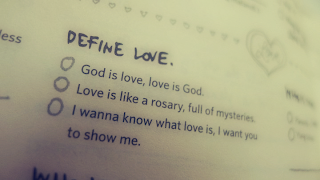 less
DEFINE LOVE.
God is love, love is God.
Love is like a rosary, full of mysteries.
I wanna know what love is, I want you
to show me.